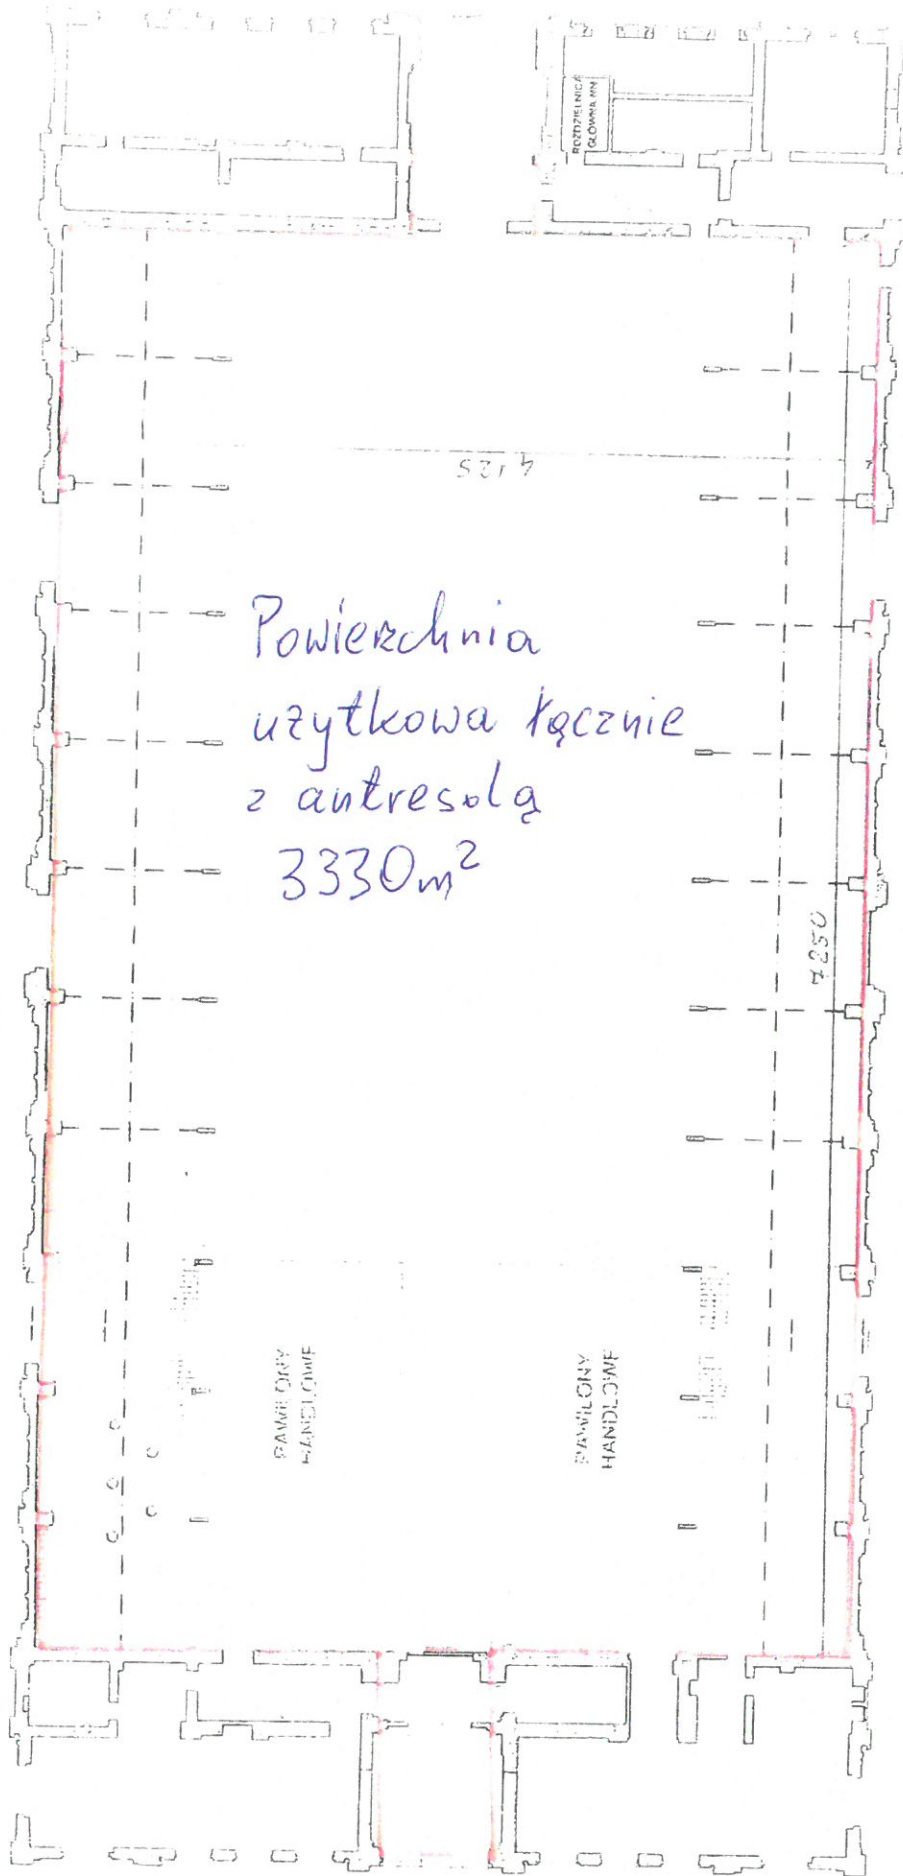 ROZDZIELNICA
GŁÓWNA NN
4125
Powierzchnia
użytkowa łącznie
z antresolą
3330m²
7250
PAWILONY
HANDLOWE
PAWILONY
HANDLOWE